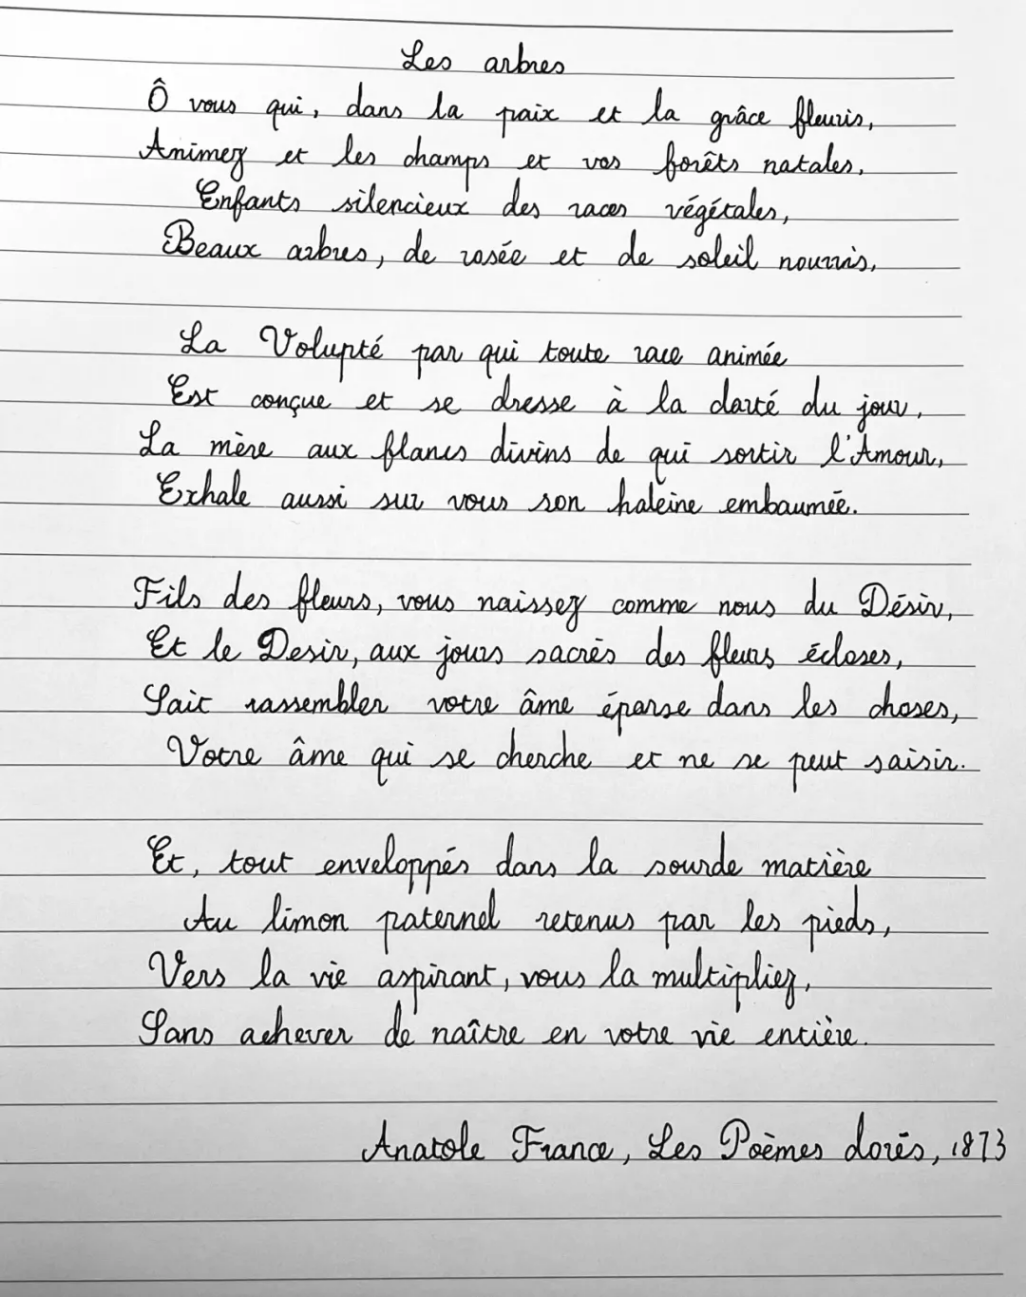 Les arbres
Ô vous qui, dans la paix et la grâce fleuris,
Animez et les champs et vos forêts natales,
Enfants silencieux des races végétales,
Beaux arbres, de rosée et de soleil nourris,
La Volupté par qui toute race animée
Est conçue et se dresse à la clarté du jour,
La mère aux flancs divins de qui sortir l'Amour,
Exhale aussi sur vous son haleine embaumée.
Fils des fleurs, vous naissez comme nous du Désir,
Et le Desir, aux jours sacrés des fleurs écloses,
Sait rassembler votre âme éparse dans les choses,
Votre âme qui se cherche et ne se peut saisir.
Et, tout enveloppés dans la sourde matière
Au limon paternel retenus par les pieds,
Vers la vie aspirant, vous la multipliez,
Sans achever de naître en votre vie entière.
Anatole France, Les Poèmes dorés, 1873